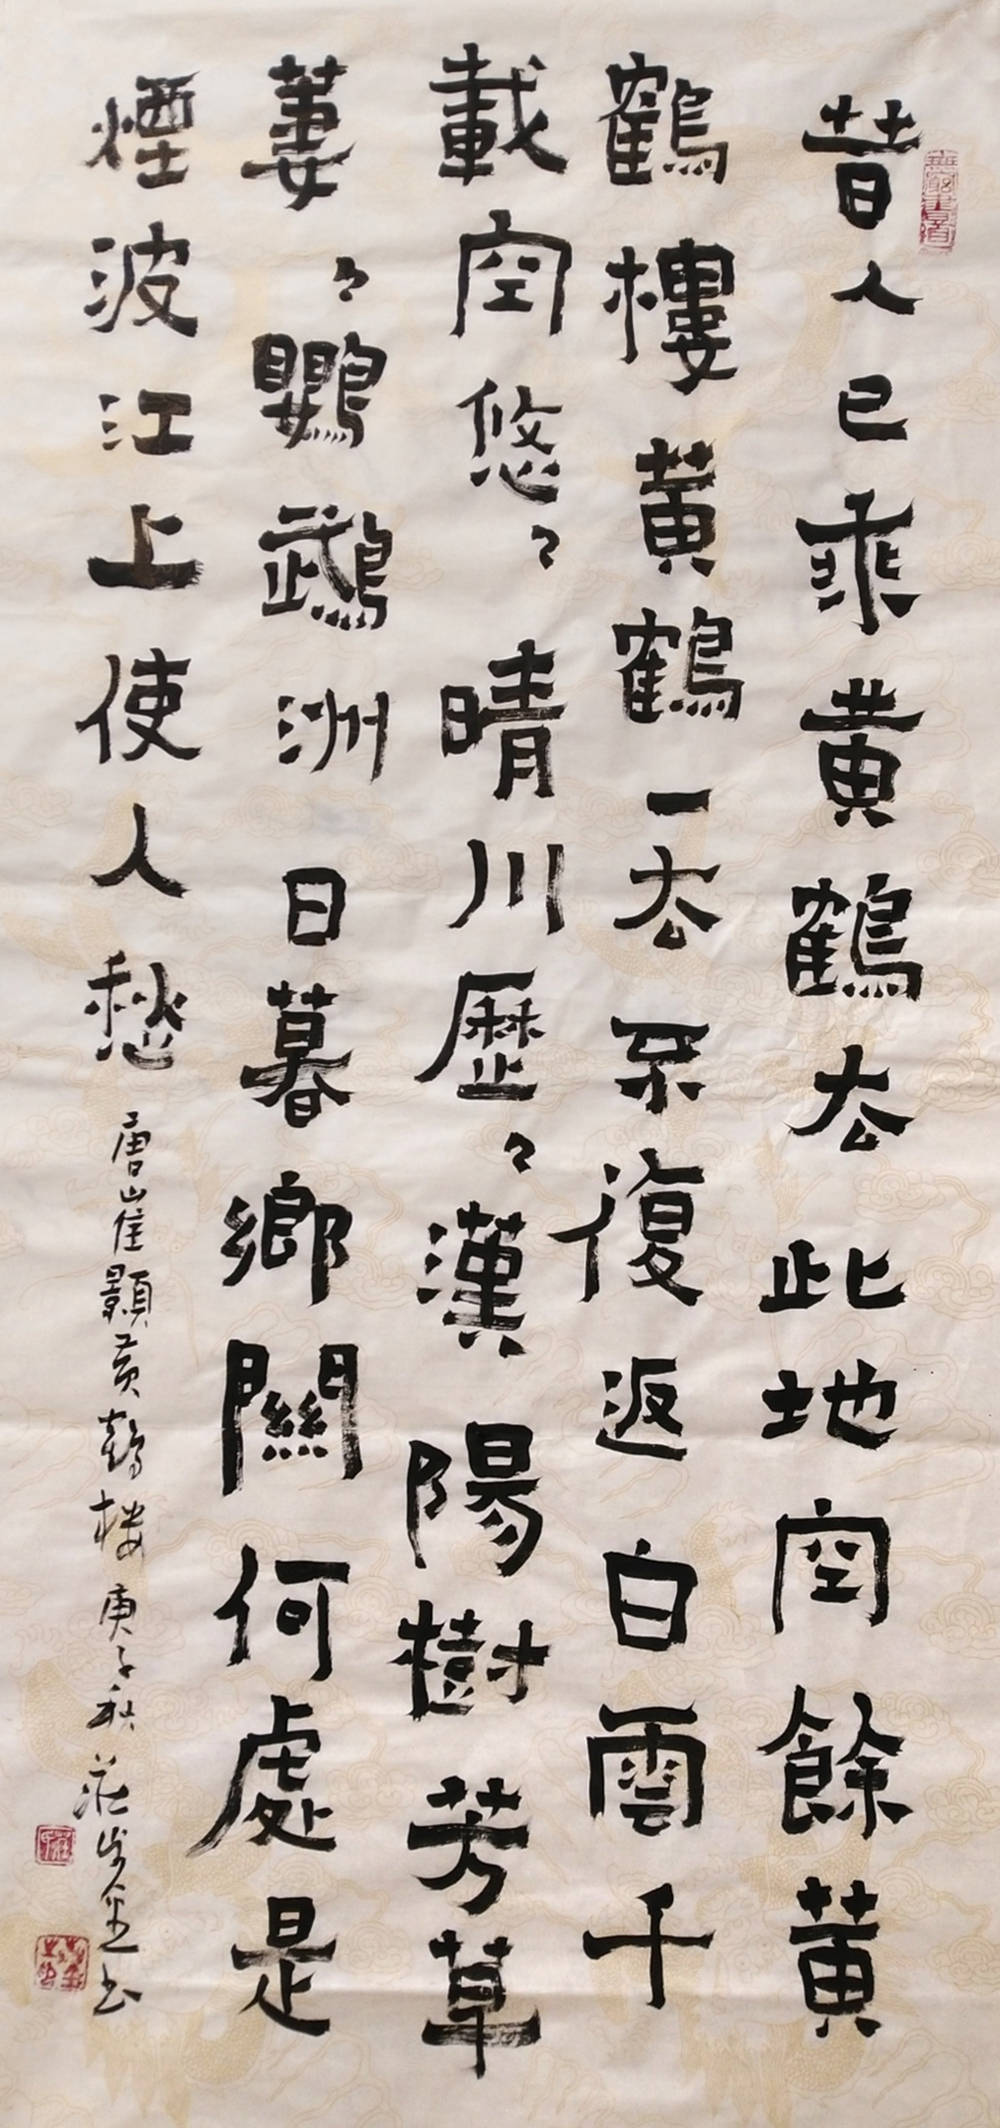 昔人已乘黄鶴去此地空餘黄
鶴樓黄鶴一去不復返白雲千
載空悠々晴川歷々漢陽樹芳草
萋々鸚鵡洲日暮鄉關何處是
煙波江上使人愁
唐崔顥黄鶴楼庚子秋莊 金書